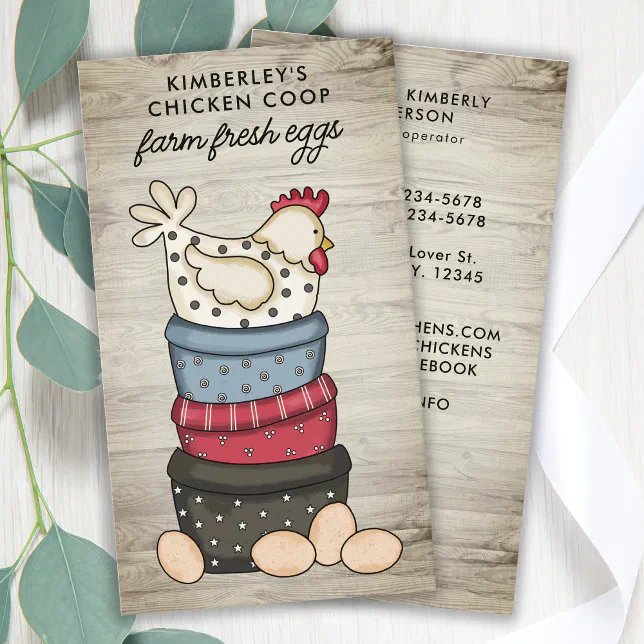 KIMBERLEY'S
CHICKEN COOP
farm fresh eggs
KIMBERLY
ERSON
operator
234-5678
234-5678
Lover St.
Y. 12345
HENS.COM
CHICKENS
EBOOK
NFO